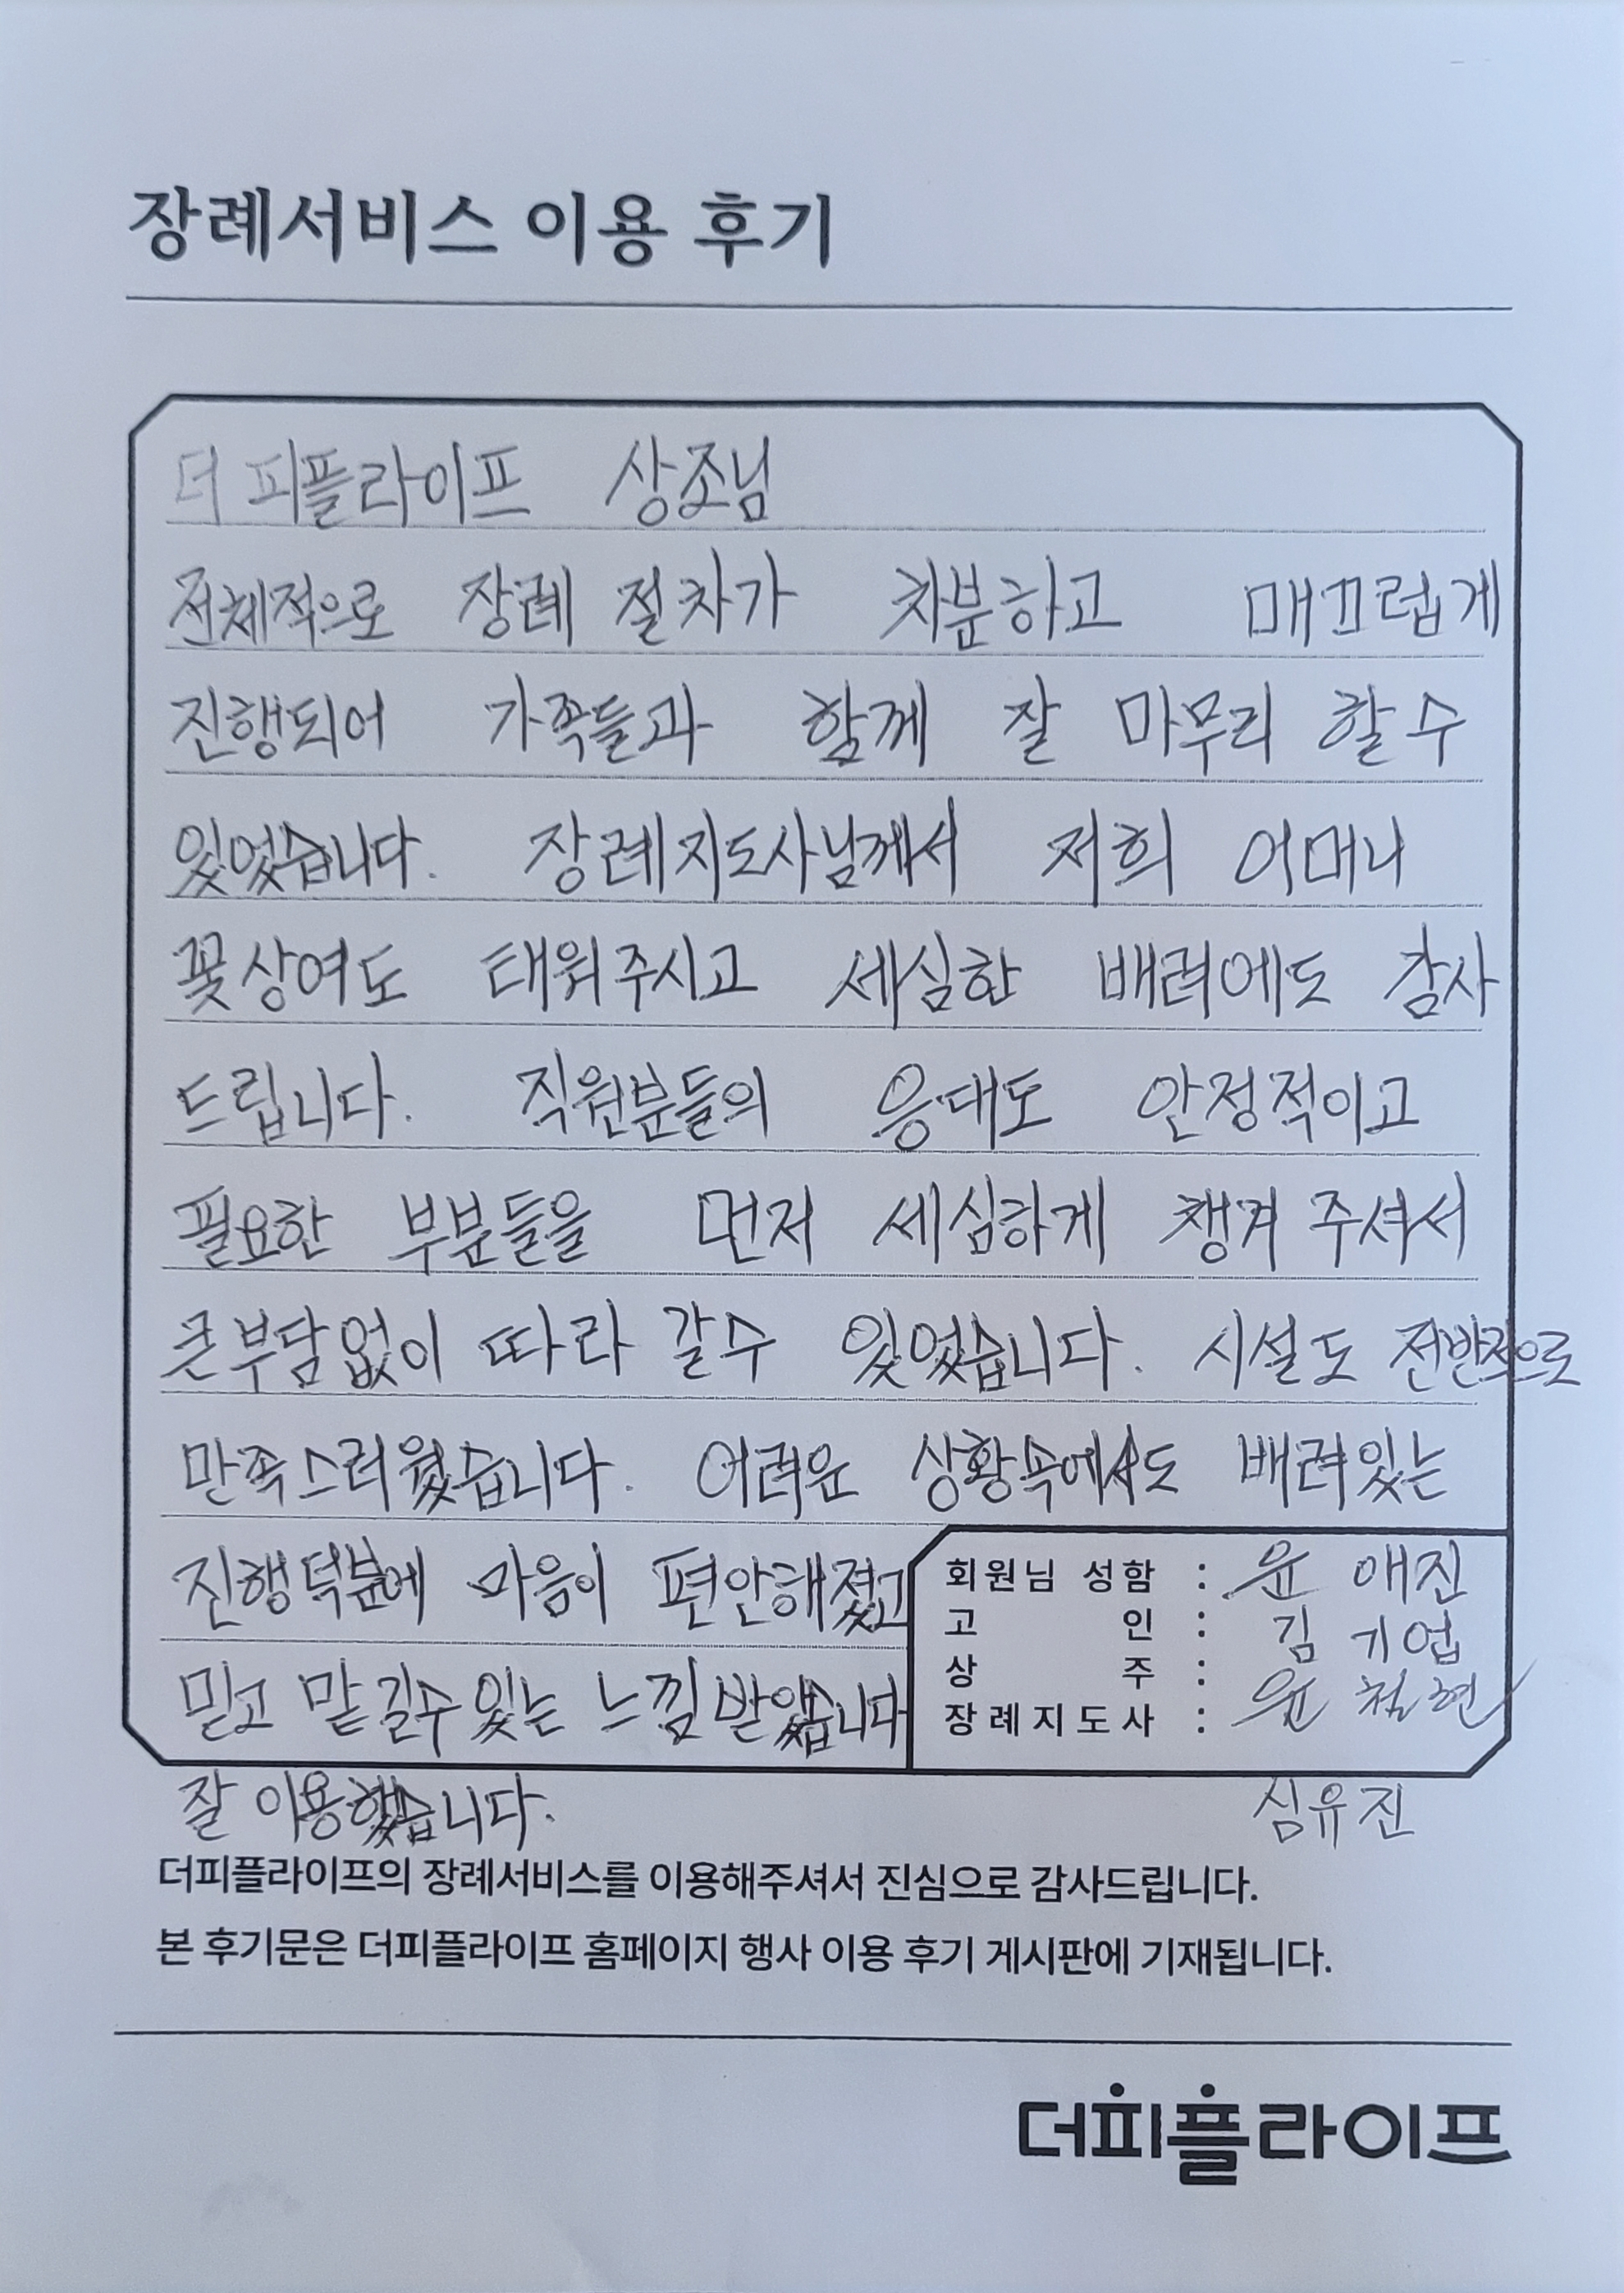 장례서비스 이용 후기
더 피플라이프 상조님
전체적으로 장례 절차가 차분하고 매끄럽게
진행되어 가족들과 함께 잘 마무리 할 수
있었습니다. 장례지도사님께서 저희 어머니
꽃상여도 태워주시고 세심한 배려에도 감사
드립니다. 직원분들의 응대도 안정적이고
필요한 부분들을 먼저 세심하게 챙겨 주셔서
큰부담없이 따라 갈수 있었습니다. 시설도 전반적으로
만족스러웠습니다. 어려운 상황속에서도 배려있는
진행덕분에 마음이 편안해졌고
믿고 맡길수있는 느낌받았습니다
잘 이용했습니다.
회원님 성함 : 윤 애진
고 인 : 김 기업
상 주 : 윤 철현
장례지도사 : 심유진
더피플라이프의 장례서비스를 이용해주셔서 진심으로 감사드립니다.
본 후기문은 더피플라이프 홈페이지 행사 이용 후기 게시판에 기재됩니다.
더피플라이프